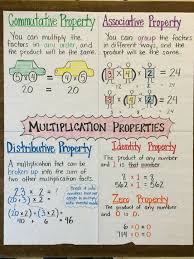 Commutative Property
You can multiply the
factors in any order, and
the product will be the same.
Associative Property
You can group the factors
in different ways, and the
product will be the same.
= 24
= 24
MULTIPLICATION PROPERTIES
Distributive Property
A multiplication fact can be
broken up into the sum of
two other multiplication facts.
23 x 2 = ?
(20 x 2) + (3 x 2) =
40 + 6 = 46
Identity Property
The product of any number
and 1 is that number.
8 x 1 = 8
562 x 1 = 562
Zero Property
The product of any number
and 0 is 0.
6 x 0 = 0
714 x 0 = 0